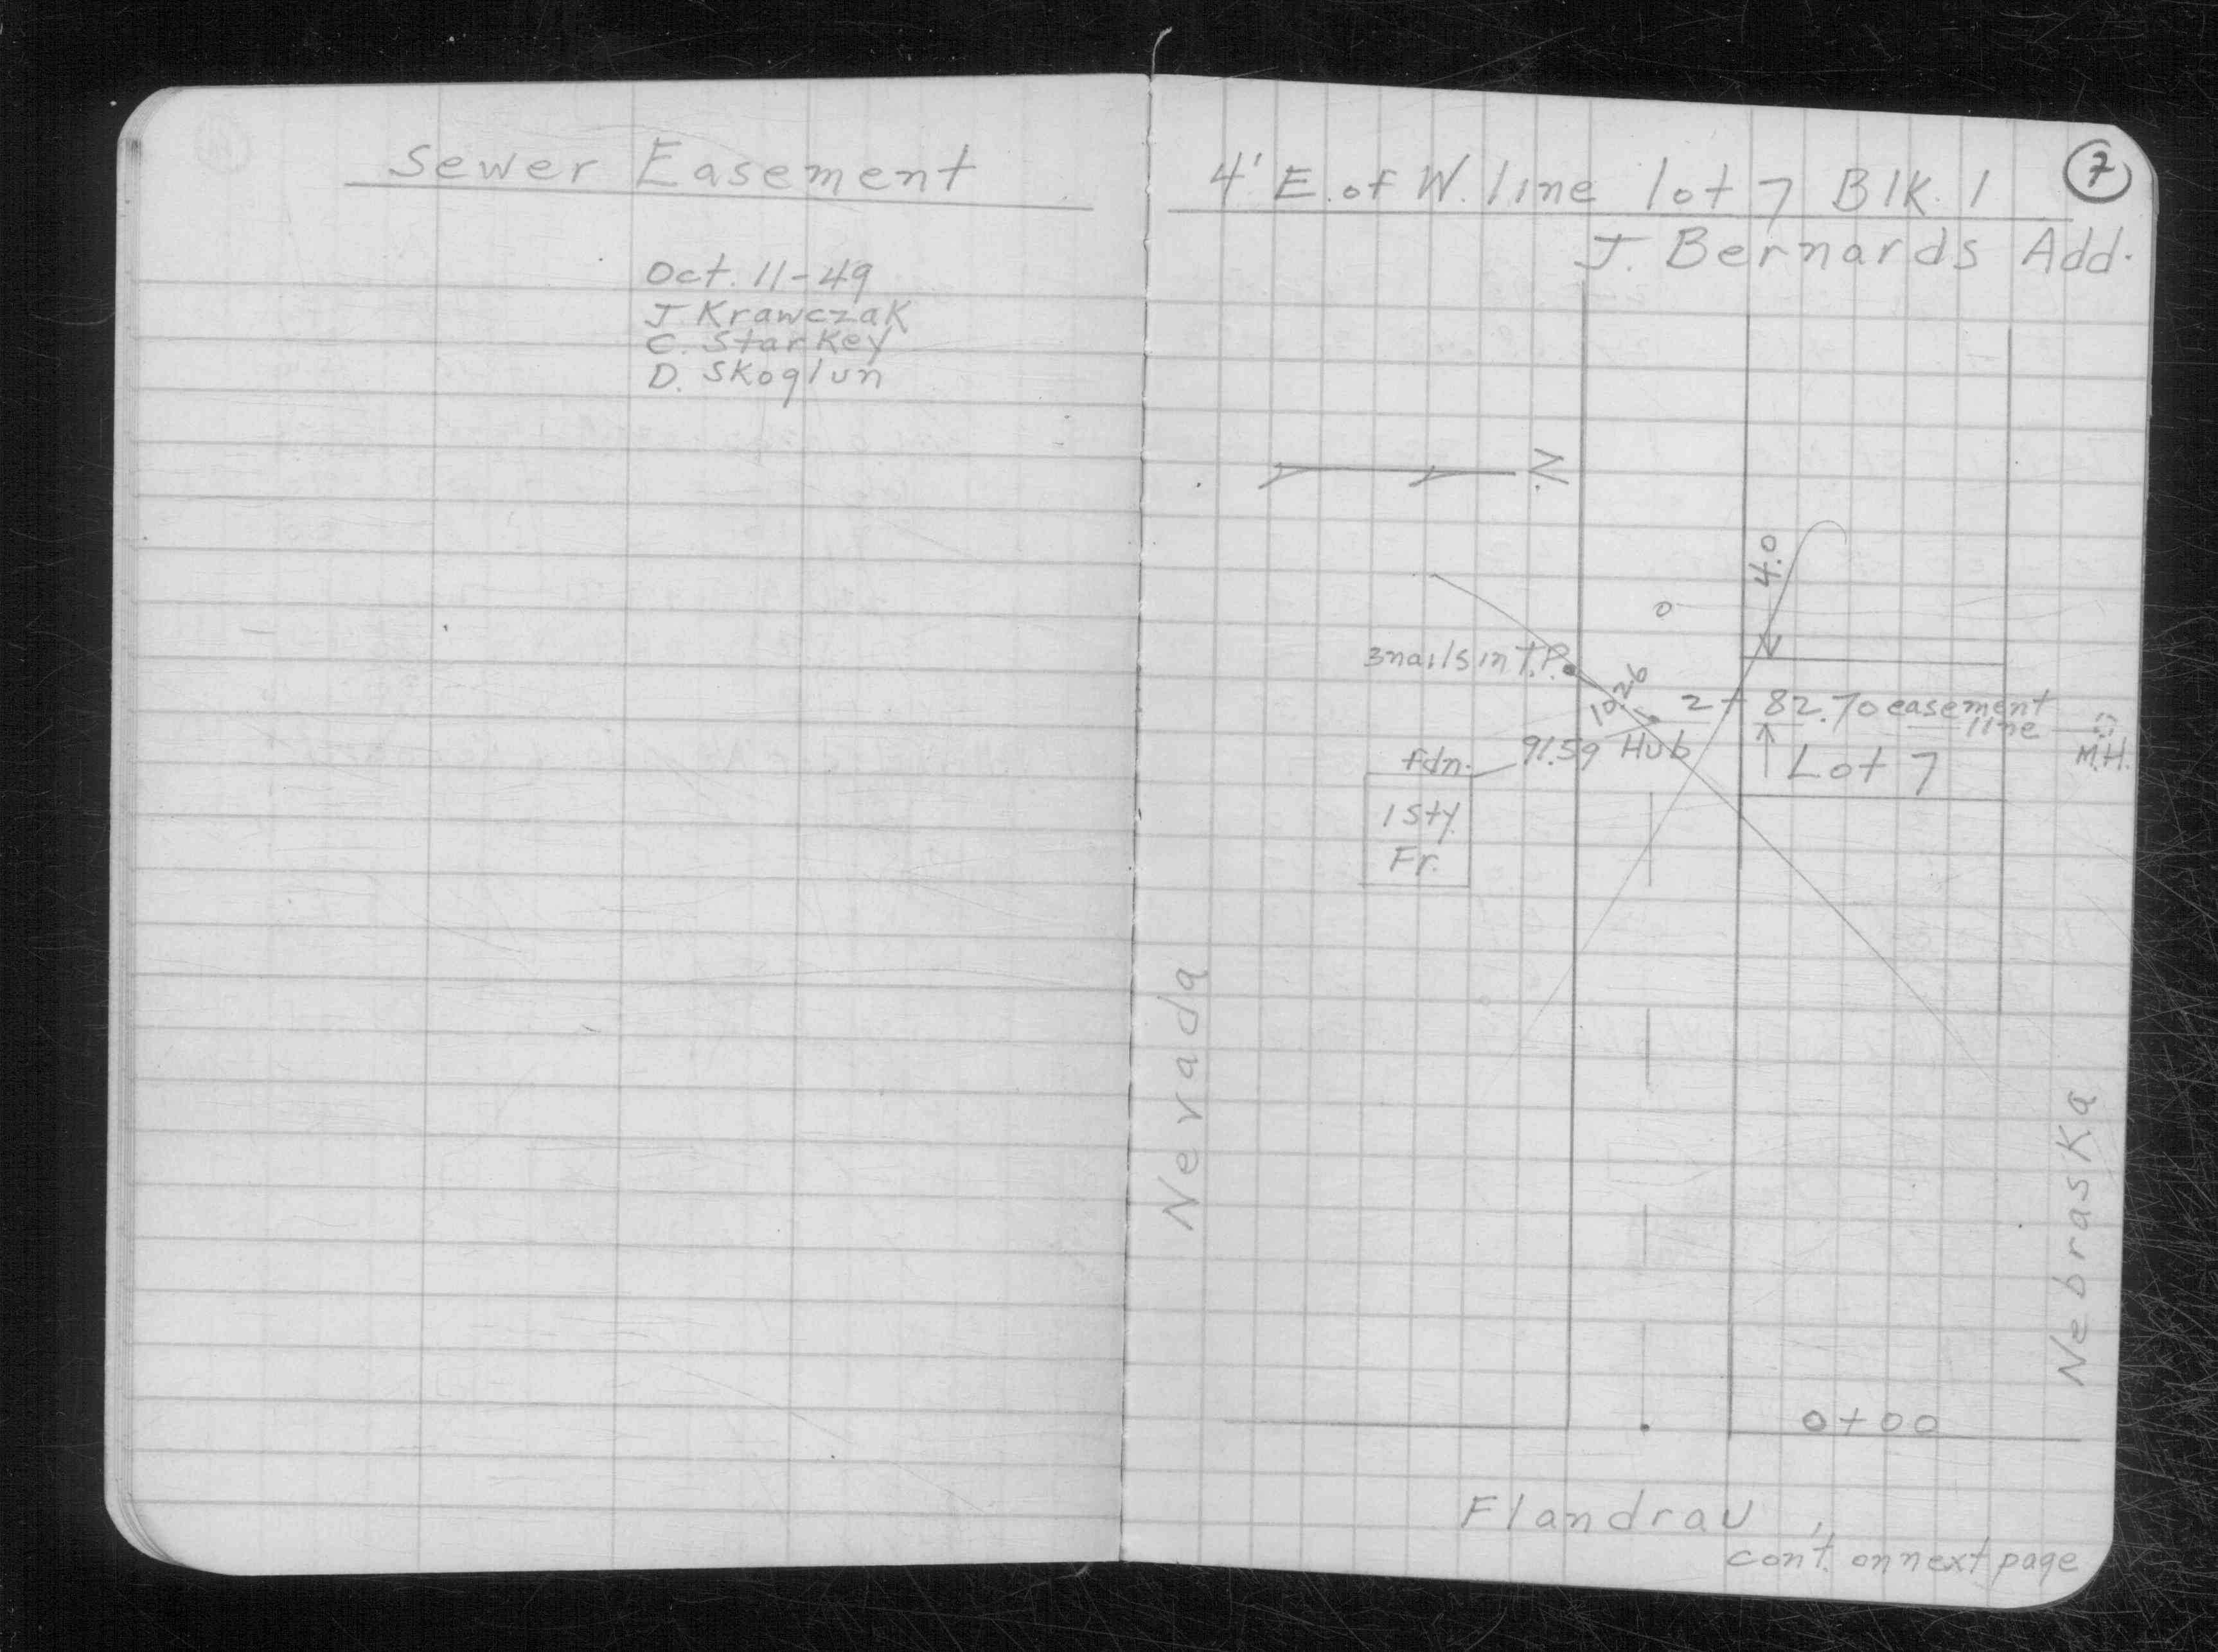 Sewer Easement
Oct. 11-49
J Krawczak
C. Starkey
D. Skoglun
7
4' E. of W. line lot 7 Blk. 1
J. Bernards Add.
N
4.0
3nails in T.P.
10.26
2+82.70 easement
line
M.H.
91.59 Hub
fdn.
Lot 7
1 Sty.
Fr.
Nevada
Nebraska
0+00
Flandrau
con't. on next page